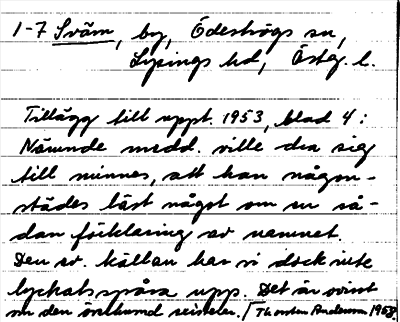 1-7 Sväm, by, Ödeshögs sn,
Lysings hd, Östg. l.
Tillägg till uppt. 1953, blad 4:
Nämnde medd. ville dra sig
till minnes, att han någon-
städes läst något om en så-
dan förklaring av namnet.
Den av. källan har vi dock inte
lyckats spåra upp. Det är ovisst
om den överhuvud existerar. Thorsten Andersson 1958.